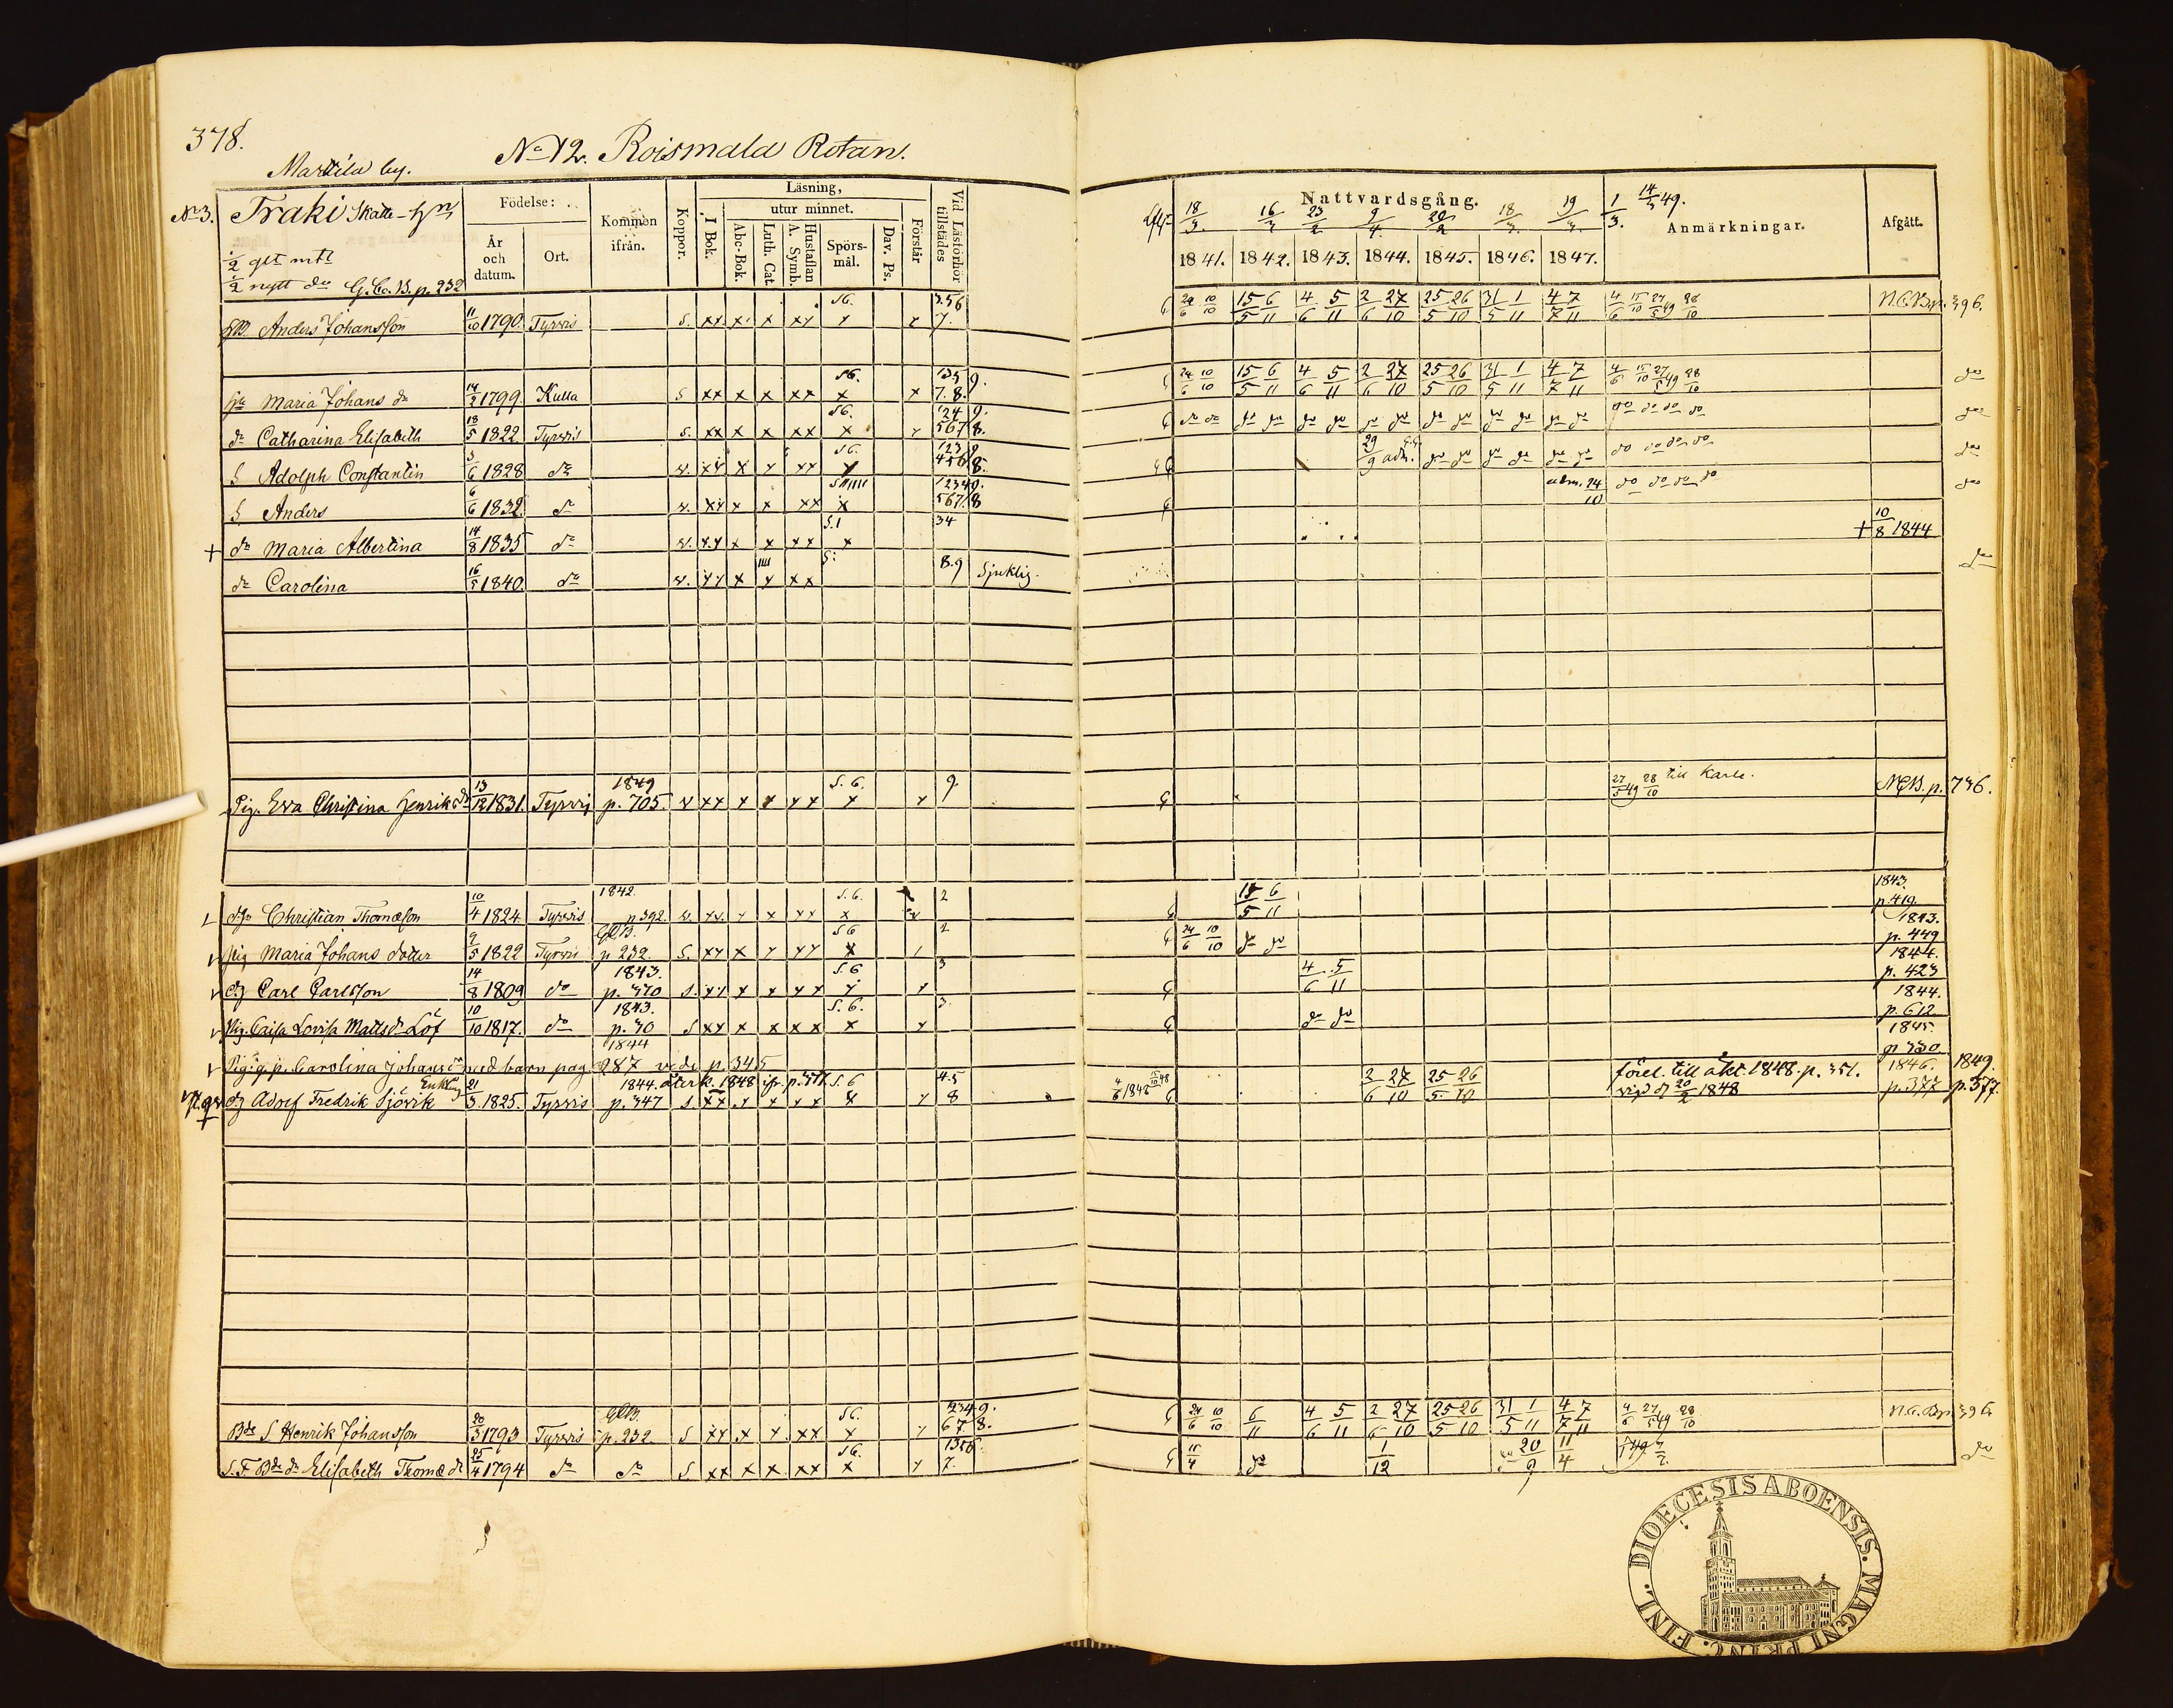 378.
Nº 12. Roismala Rotan.
Marttila by.
Nº 3. Fraki Skatte-Hn
Födelse:
År och datum.
Ort.
Kommen ifrån.
Koppor.
Läsning,
I Bok.
utur minnet.
Abc-Bok.
Luth. Cat.
Hustaflan A. Symb.
Spörsmål.
Dav. Ps.
Förstår
Vid Läsförhör tillstädes
Nattvardsgång.
18/3. 16/3 23/2 9/4. 20/2 18/3. 19/3. 1/3. 14/3 49.
1841. 1842. 1843. 1844. 1845. 1846. 1847.
Anmärkningar.
Afgått.
1/2 glt mtl
1/2 nytt do G.C.B. p. 232
Anders Johansson 11/10 1790. Tyrvis S. xx x x xx S6. x x 3.56 7. 24/6 10/10 15/5 6/11 4/6 5/11 2/6 27/10 25/5 26/10 31/5 1/11 4/7 7/11 4/6 15/10 27/5 49 28/10 N.C.B. p. 396.
Hu Maria Johans dr 14/2 1799. Kulla S xx x x xx S6. x x 7.8. 9. 24/6 10/10 15/5 6/11 4/6 5/11 2/6 27/10 25/5 26/10 31/5 1/11 4/7 7/11 4/6 15/10 27/5 49 28/10 do
dr Catharina Elisabeth 18/5 1822 Tyrvis S. xx x x xx S6. x x 24 9. 567 8. do do do do do do do do do do do do do do do do do do do
S Adolph Constantin 3/6 1828 do v. xx x x xx S6. x 123 9 456 8. 29/9 adm. do do do do do do do do do do do
S. Anders 6/6 1832 do v. xx x x xx x 1234 9. 567 8 adm. 24/10 do do do do do
+ dr Maria Albertina 14/8 1835 do v. xx x x xx S.1 x 34 + 10/8 1844
dr Carolina 16/5 1840. do v. xx x x xx S: 8.9 Sjuklig. do
Pig. Eva Christina Henriks dr 13/12 1831. Tyrvis 1849 p. 705. v xx x x xx S. 6. x x 9. 27/5 49 28/10 till Karle. N.C.B. p. 736.
Christian Thomasson 10/4 1824. Tyrvis 1842. p 392. v. xx. x x xx S.6. x x 2 15/5 6/11 1843. p 419.
Pig Maria Johans dotter 9/5 1822 Tyrvis G.C.B. p 232. S. xx x x xx S6 x 2 24/6 10/10 do do 1843. p. 449
dg Carl Carlsson 14/8 1809 do 1843. p. 370 S. xx x x xx S.6 x x 3 4/6 5/11 1844. p. 423
Pig. Caisa Lovisa Mattsdr Löf 10/10 1817. do 1843. p. 70 S xx x x xx S. 6. x x 3. do do 1844. p. 612
Pig. g. p. Carolina Johansdr med barn pag. 1844 287 vide p. 345 1845. p 330
dg Adolf Fredrik Sjövik Enkling 21/3. 1825. Tyrvis 1844. återk. 1848 ifr. p. 377. p. 347 S. xx x x xx S. 6 x x 4.5 8 4/6 1848 15/10 48 2/6 27/10 25/5 26/10 föret. till äkt. 1848. p. 351. vigd 20/2 1848 1846. p. 377 1849. p. 577.
Bdr S Henrik Johansson 20/3 1793 Tyrvis G.C.B. p. 232. S xx x x xx S6. x x 234 9. 67 8. 24/6 10/10 6/11 4/6 5/11 2/6 27/10 25/5 26/10 31/5 1/11 4/7 7/11 4/6 27/5 49 28/10 N.C.B. p. 396
S. F. Bdr dr Elisabeth Thomæ dr 25/4 1794 do do S xx x x xx S6. x x 1356. 7. 11/4 do 1/12 20/9 11/4 do
DIOECESIS ABOENSIS. MAGNI PRINC. FINL.